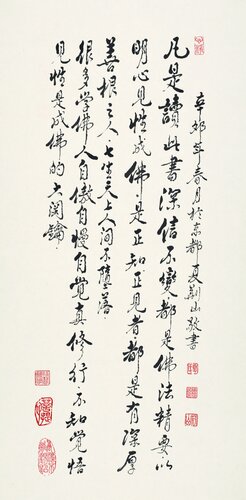 辛卯年春月於京都夏荆山敬書
凡是讀此書深信不變都是佛法精要以
明心見性成佛是正知正見者都是有深厚
善根之人七生天上人间不墮落
很多学佛人自傲自慢自覺真修行不知覺悟
見性是成佛的大関鑰